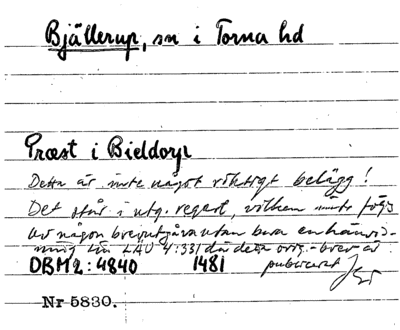 Bjällerup, sn i Torna hd
Præst i Bieldorp
Detta är inte något riktigt belägg!
Det står i utg. regest, vilken inte följs
av någon brevutgåva utan bara en hänvis-
ning till LAU 4:331 där detta orig.-brev är
DRM2:4840 1481 publicerat
Nr 5830.